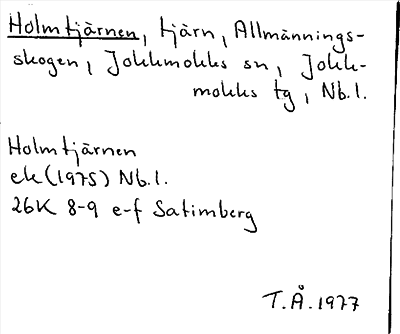 Holmtjärnen, tjärn, Allmännings-
skogen, Jokkmokks sn, Jokk-
mokks tg, Nb.l.
Holmtjärnen
ek (1975) Nb.l.
26K 8-9 e-f Satimberg
T.Å.1977